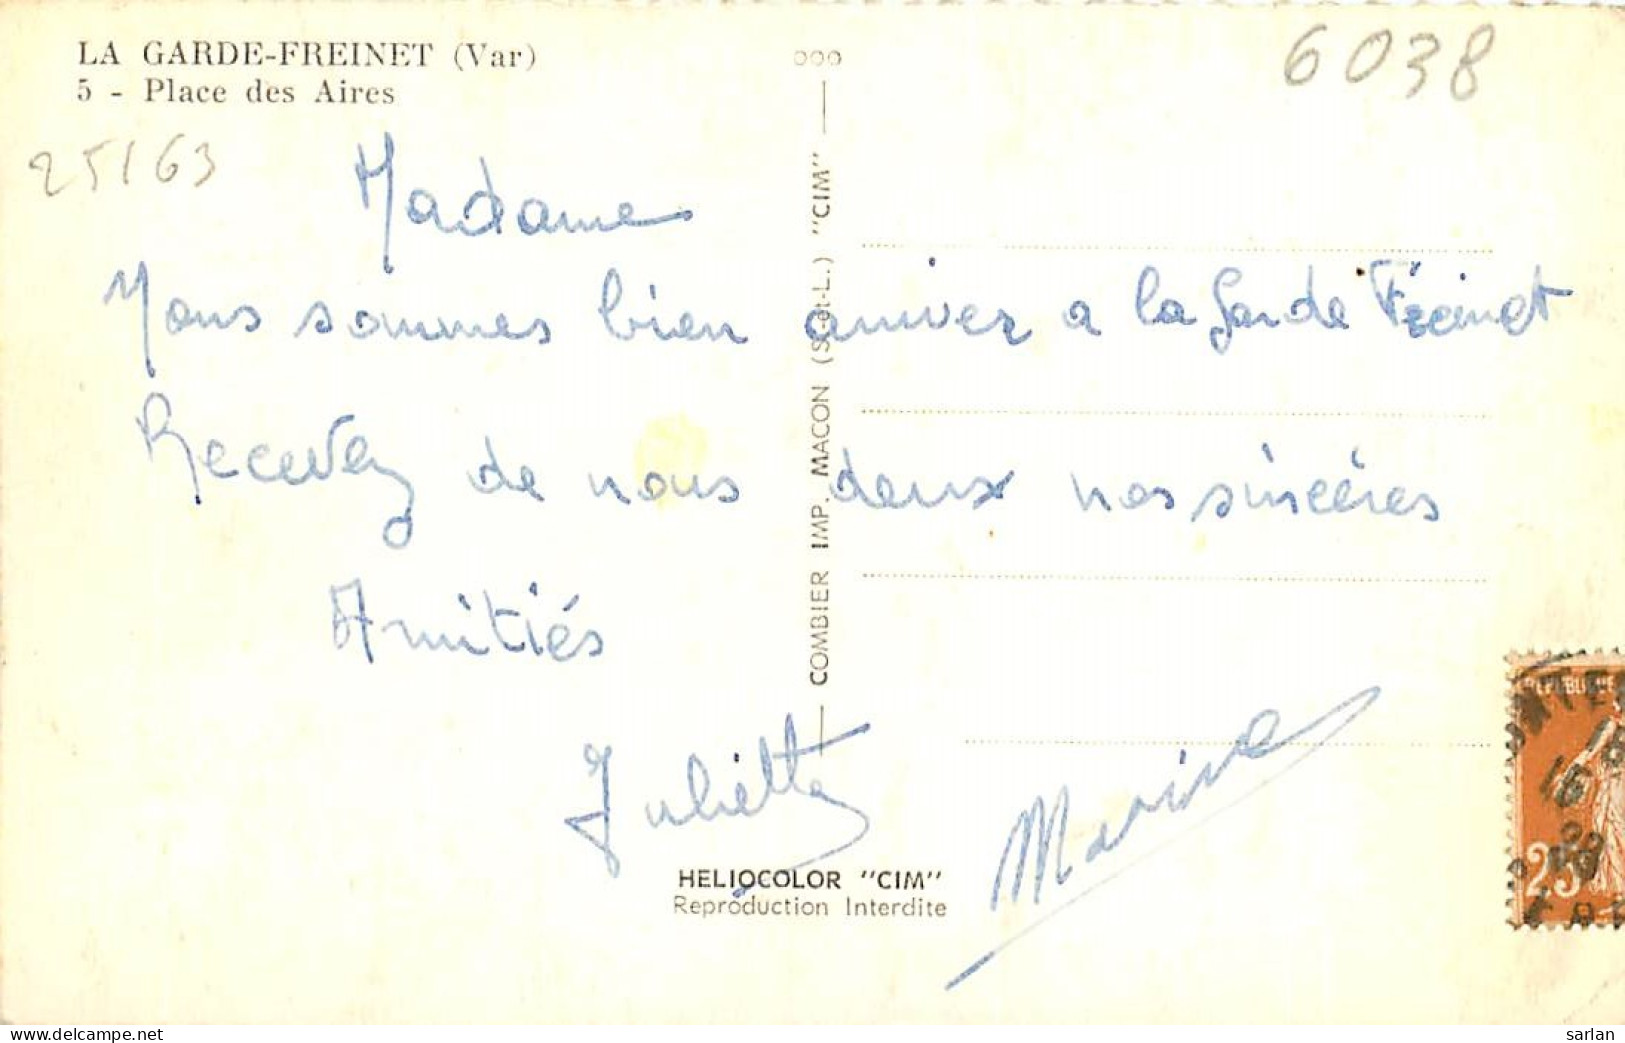 LA GARDE-FREINET (Var)
5 - Place des Aires
6038
25163
Madame
Nous sommes bien arriver a la Garde Freinet
Recevez de nous deux nos sincères
Amitiés
Juliette
Marina
COMBIER IMP. MACON (S.-et-L.) "CIM"
HELIOCOLOR "CIM"
Reproduction Interdite
REPUBLIQUE
25
https://www.delcampe.net
sarlan